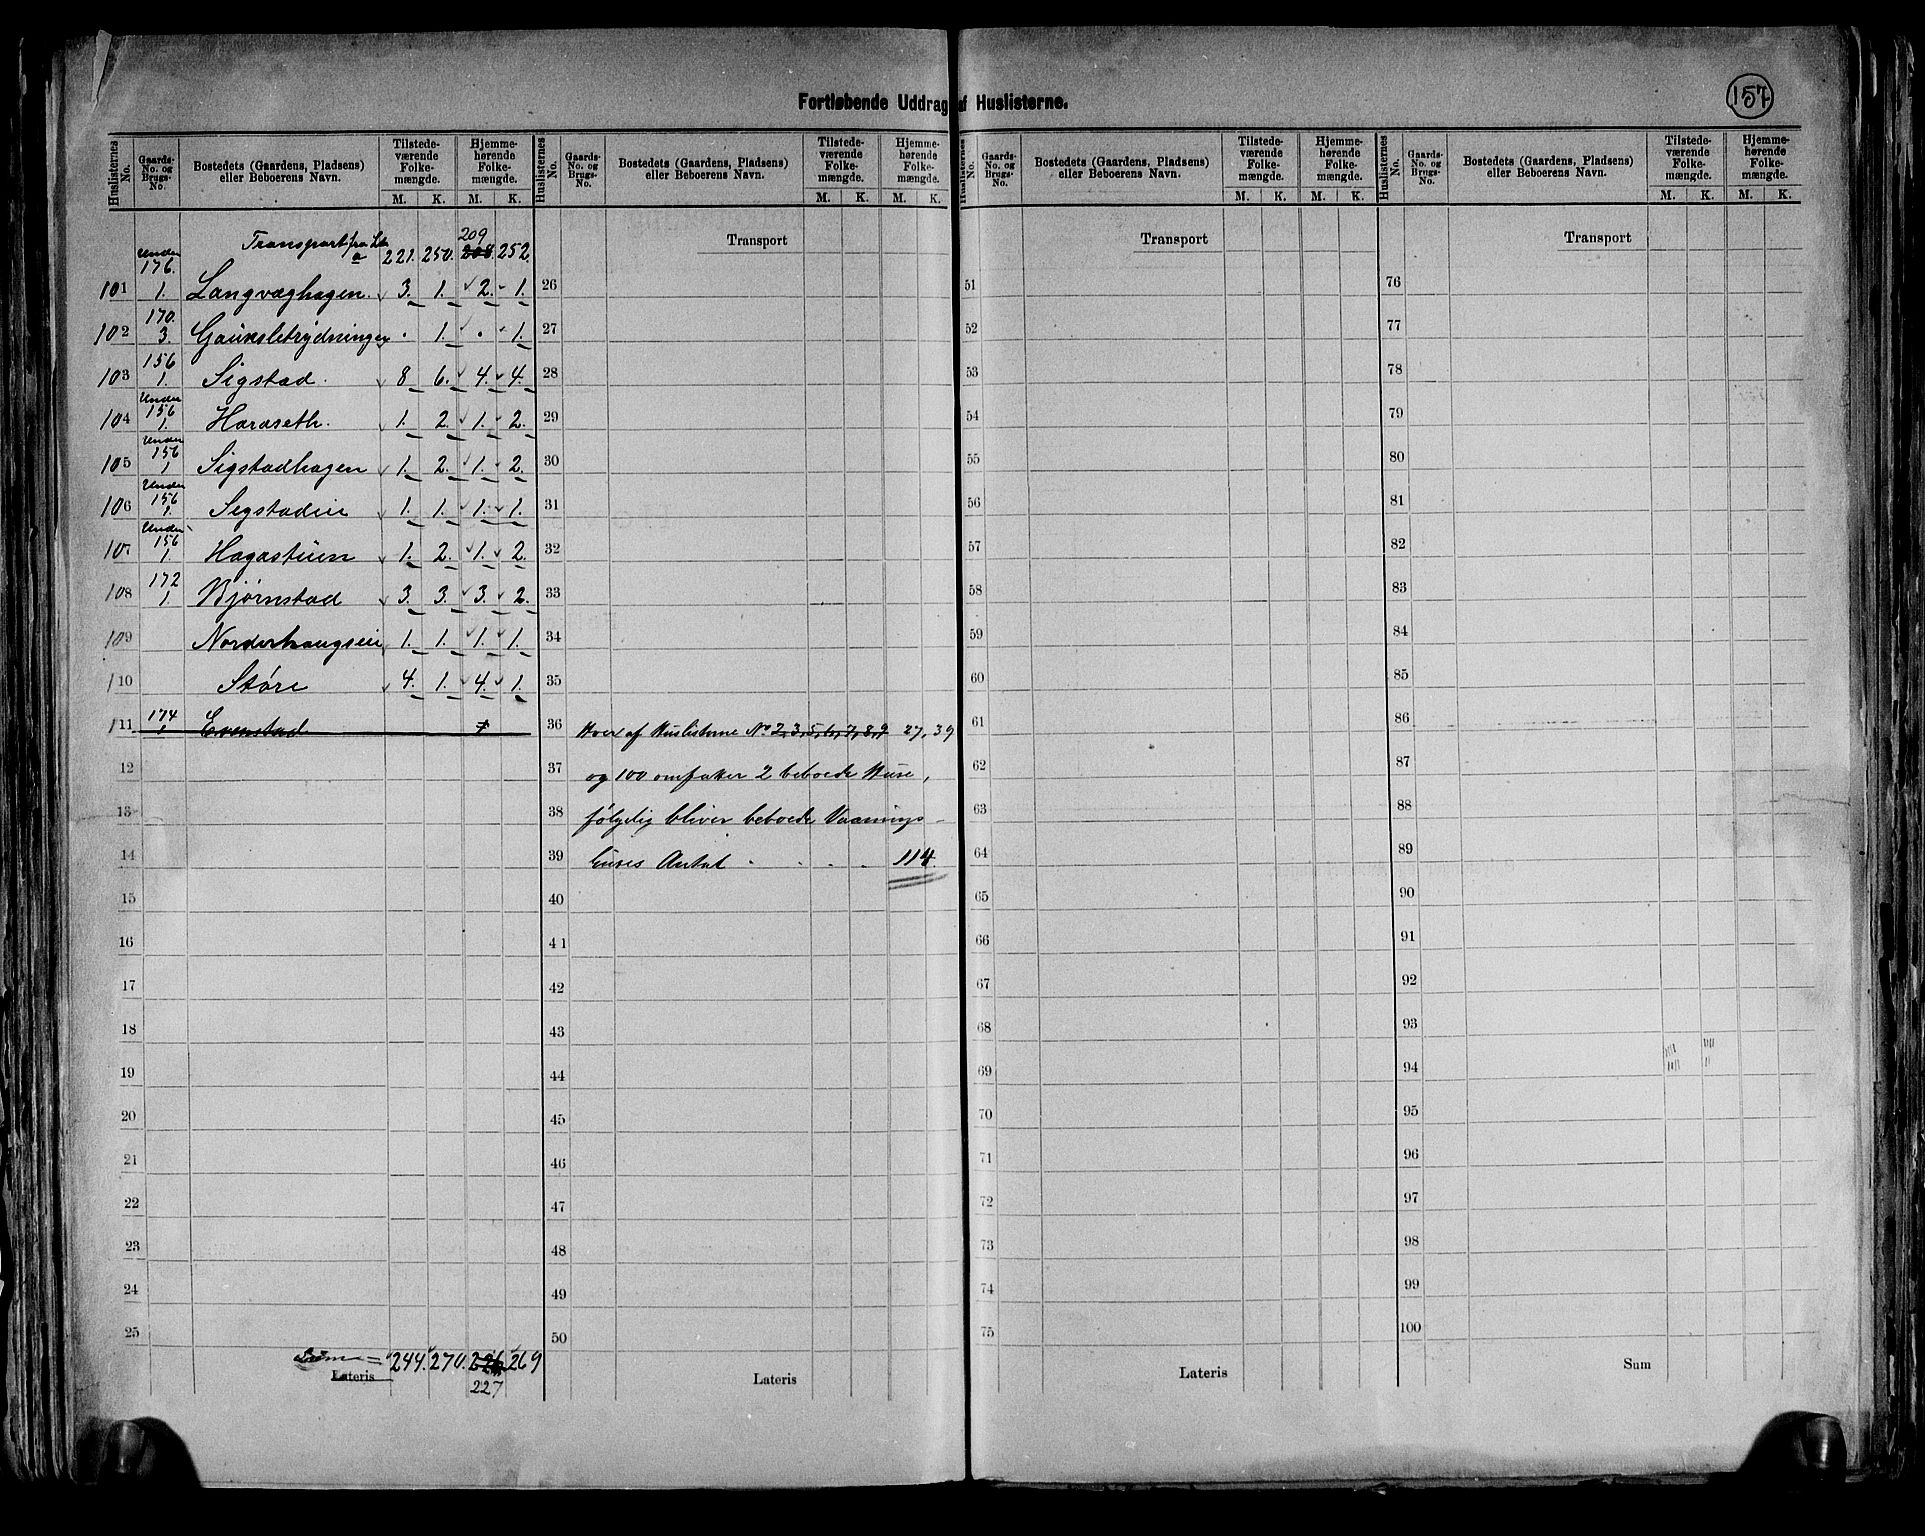 Fortløbende Uddrag af Huslisterne.
157
Huslisternes No. | Gaards-No. og Brugs-No. | Bostedets (Gaardens, Pladsens) eller Beboerens Navn. | Tilstedeværende Folkemængde. M. K. | Hjemmehørende Folkemængde. M. K.
Huslisternes No. | Gaards-No. og Brugs-No. | Bostedets (Gaardens, Pladsens) eller Beboerens Navn. | Tilstedeværende Folkemængde. M. K. | Hjemmehørende Folkemængde. M. K.
Huslisternes No. | Gaards-No. og Brugs-No. | Bostedets (Gaardens, Pladsens) eller Beboerens Navn. | Tilstedeværende Folkemængde. M. K. | Hjemmehørende Folkemængde. M. K.
Huslisternes No. | Gaards-No. og Brugs-No. | Bostedets (Gaardens, Pladsens) eller Beboerens Navn. | Tilstedeværende Folkemængde. M. K. | Hjemmehørende Folkemængde. M. K.
209
Transport fra 221. 250. 208 252.
101 Under 176. 1. Langvæghagen. 3. 1. 2. 1.
102 170. 3. Gauksletrydningen . 1. . 1.
103 156 1. Sigstad. 8 6. 4. 4.
104 Under 156 1. Haraseth. 1. 2. 1. 2.
105 Under 156 1 Sigstadhagen 1. 2. 1. 2.
106 Under 156 1. Sigstadeie 1. 1. 1. 1.
107 Under 156 1. Hagastuen 1. 2. 1. 2.
108 172 1. Bjørnstad 3. 3. 3. 2.
109 Norderhaugseie 1. 1. 1. 1.
110 Støre 4. 1. 4. 1.
111 174 1 Evenstad
12
13
14
15
16
17
18
19
20
21
22
23
24
25
Summa = 244. 270. 226 269
Lateris 227
Transport
26
27
28
29
30
31
32
33
34
35
36 Hver af Huslisterne No 2, 3, 5, 6, 7, 8, 9 27, 39
37 og 100 omfatter 2 beboede Huse,
38 følgelig bliver beboede Vaanings-
39 huses Antal . . . . 114.
40
41
42
43
44
45
46
47
48
49
50
Lateris
Transport
51
52
53
54
55
56
57
58
59
60
61
62
63
64
65
66
67
68
69
70
71
72
73
74
75
Lateris
Transport
76
77
78
79
80
81
82
83
84
85
86
87
88
89
90
91
92
93
94
95
96
97
98
99
100
Sum